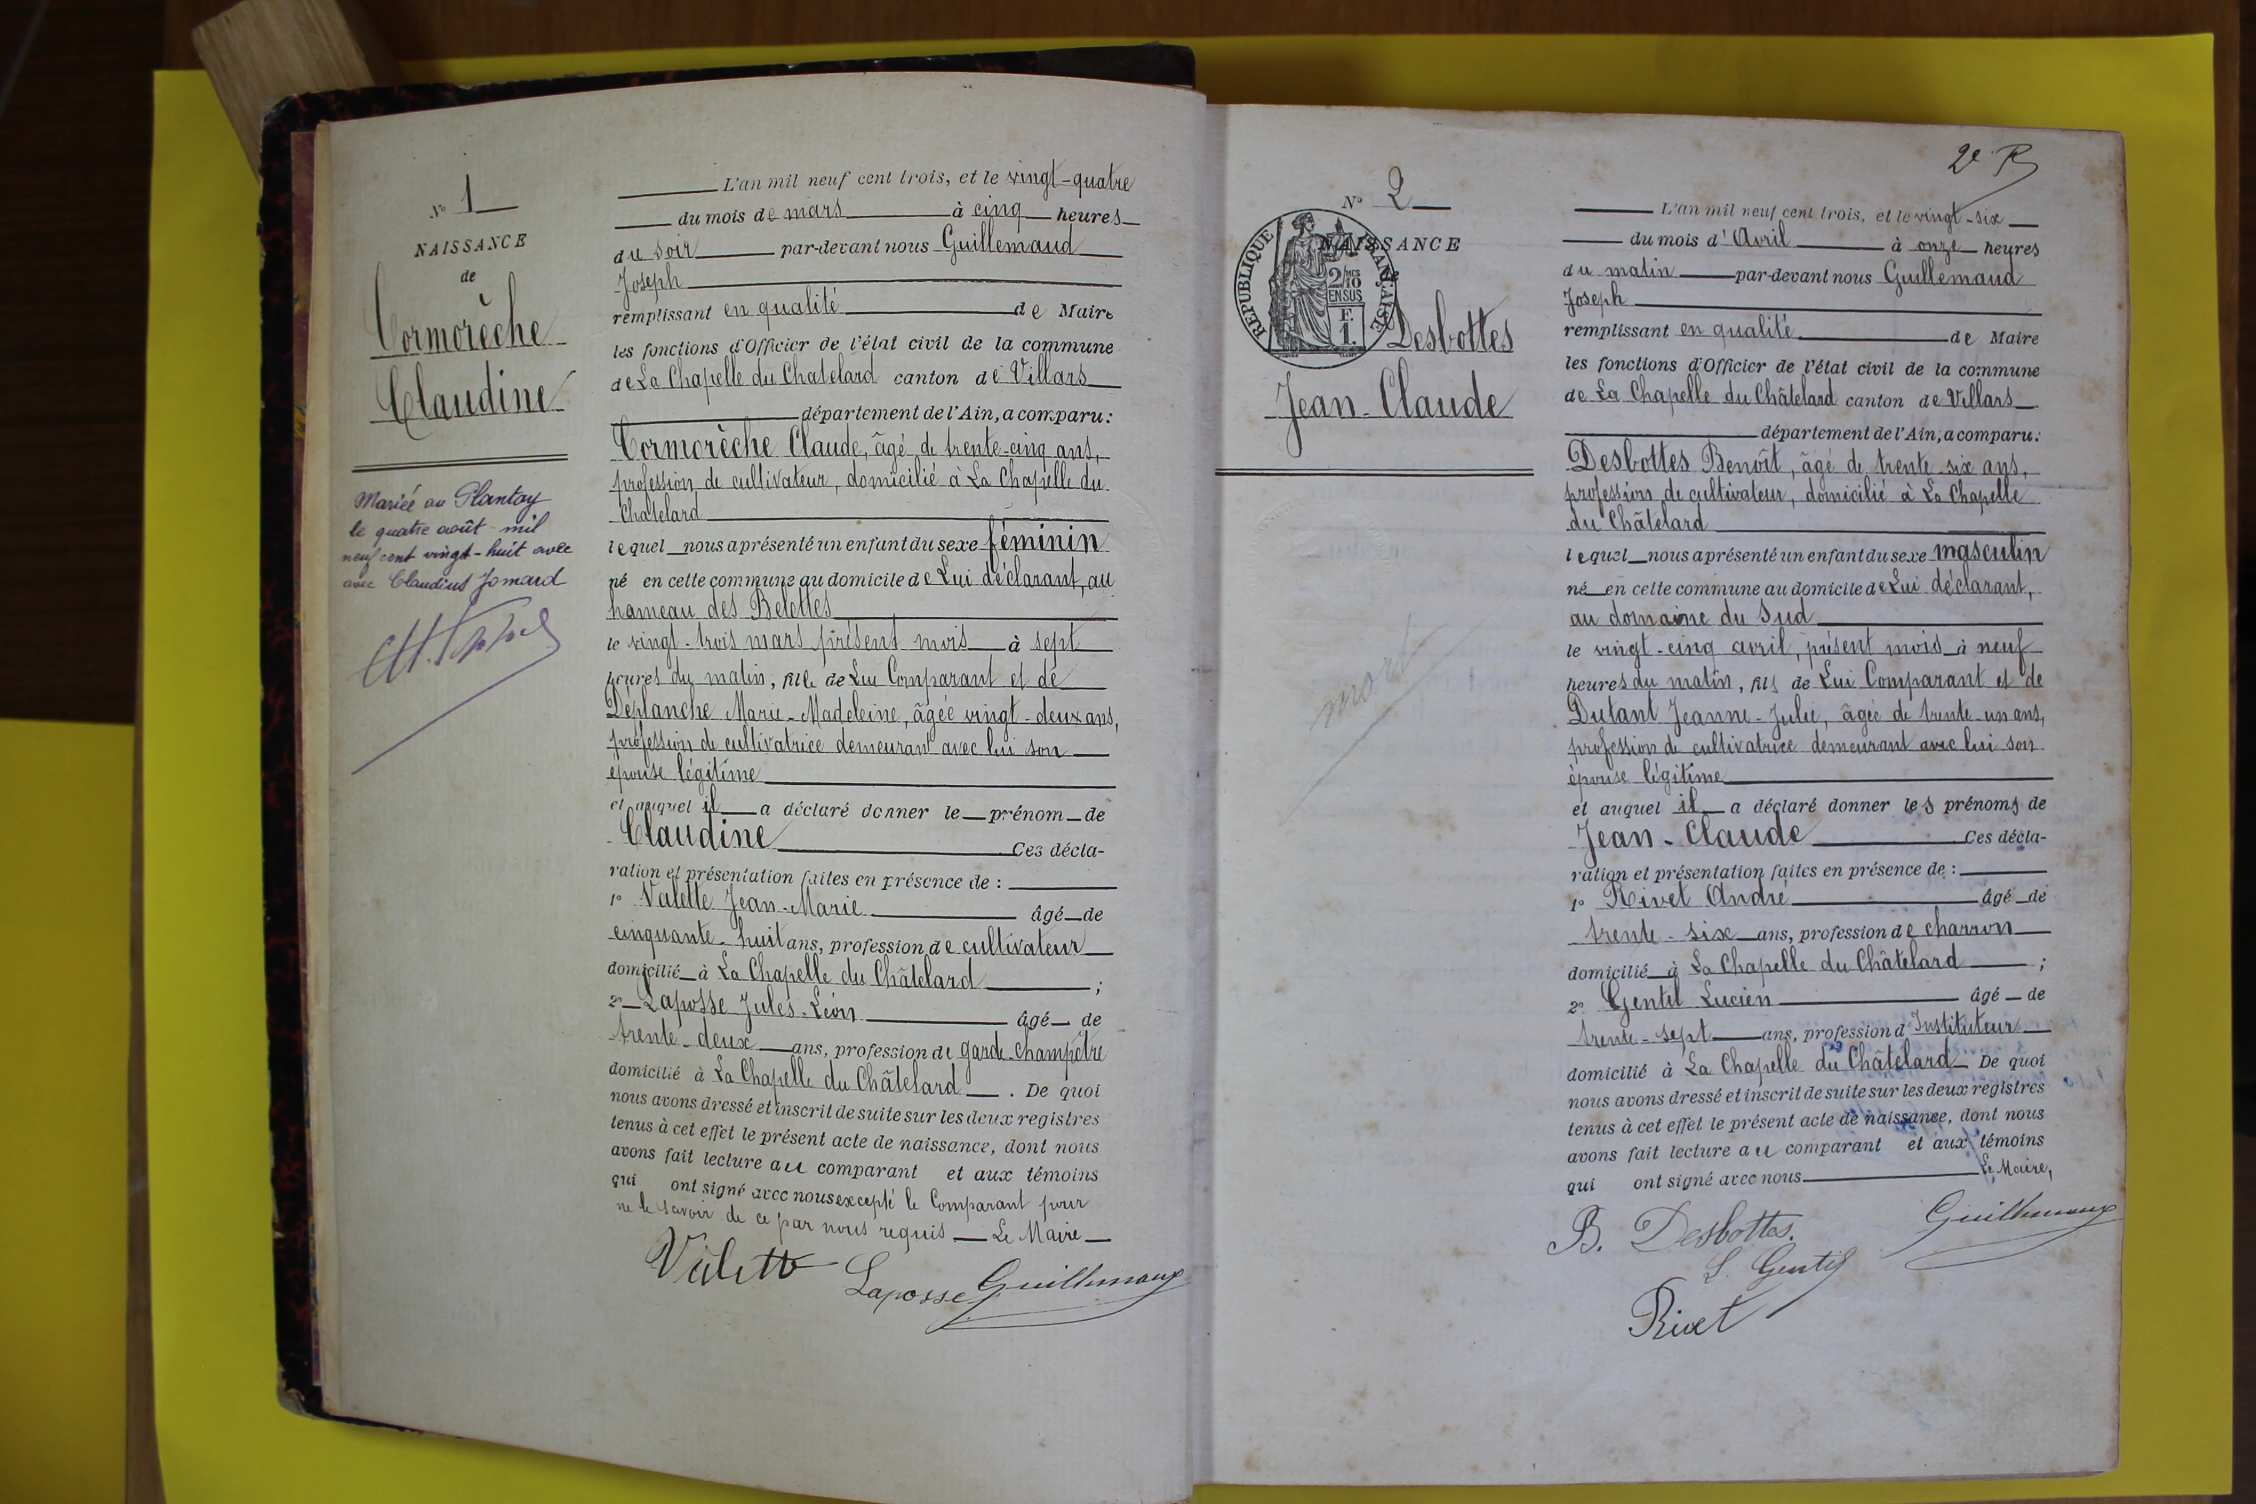 N° 1
NAISSANCE
de
Cormorèche
Claudine
Mariée au Plantay
le quatre août mil
neuf cent vingt-huit avec
avec Claudius Jomard
L'an mil neuf cent trois, et le vingt-quatre
du mois de mars à cinq heures
du soir par-devant nous Guillemaud
Joseph
remplissant en qualité de Maire
les fonctions d'Officier de l'état civil de la commune
de La Chapelle du Chatelard canton de Villars
département de l'Ain, a comparu:
Cormorèche Claude, âgé de trente-cinq ans,
profession de cultivateur, domicilié à La Chapelle du
Chatelard
lequel nous a présenté un enfant du sexe féminin
né en cette commune au domicile de Lui déclarant, au
hameau des Belettes
le vingt-trois mars présent mois à sept
heures du matin, fille de Lui Comparant et de
Déplanche Marie-Madeleine, âgée vingt-deux ans,
profession de cultivatrice demeurant avec lui son
épouse légitime
et auquel il a déclaré donner le prénom de
Claudine Ces décla-
ration et présentation faites en présence de :
1° Valette Jean-Marie âgé de
cinquante-huit ans, profession de cultivateur
domicilié à La Chapelle du Châtelard ;
2° Laposse Jules-Léon âgé de
trente-deux ans, profession de garde-champêtre
domicilié à La Chapelle du Châtelard . De quoi
nous avons dressé et inscrit de suite sur les deux registres
tenus à cet effet le présent acte de naissance, dont nous
avons fait lecture au comparant et aux témoins
qui ont signé avec nous excepté le Comparant pour
ne le savoir de ce par nous requis Le Maire
Valette Laposse Guillemaud
2e R
N° 2
NAISSANCE
de
RÉPUBLIQUE FRANÇAISE
2/10
EN SUS
F.
1.
Desbottes
Jean-Claude
mort
L'an mil neuf cent trois, et le vingt-six
du mois d'Avril à onze heures
du matin par-devant nous Guillemaud
Joseph
remplissant en qualité de Maire
les fonctions d'Officier de l'état civil de la commune
de La Chapelle du Châtelard canton de Villars
département de l'Ain, a comparu:
Desbottes Benoît, âgé de trente six ans,
profession de cultivateur, domicilié à La Chapelle
du Châtelard
lequel nous a présenté un enfant du sexe masculin
né en cette commune au domicile de Lui déclarant,
au domaine du Sud
le vingt-cinq avril, présent mois à neuf
heures du matin, fils de Lui Comparant et de
Dutant Jeanne-Julie, âgée de trente-un ans,
profession de cultivatrice demeurant avec lui son
épouse légitime
et auquel il a déclaré donner les prénoms de
Jean-Claude Ces décla-
ration et présentation faites en présence de :
1° Rivet André âgé de
trente-six ans, profession de charron
domicilié à La Chapelle du Châtelard ;
2° Gentil Lucien âgé de
trente-sept ans, profession d'Instituteur
domicilié à La Chapelle du Châtelard De quoi
nous avons dressé et inscrit de suite sur les deux registres
tenus à cet effet le présent acte de naissance, dont nous
avons fait lecture au comparant et aux témoins
qui ont signé avec nous Le Maire,
B. Desbottes. Guillemaud
L. Gentil
Rivet